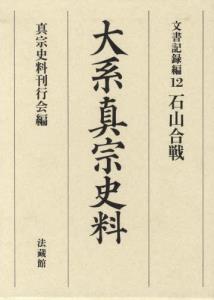 文書記録編12 石山合戦
大系真宗史料
真宗史料刊行会編
法藏館